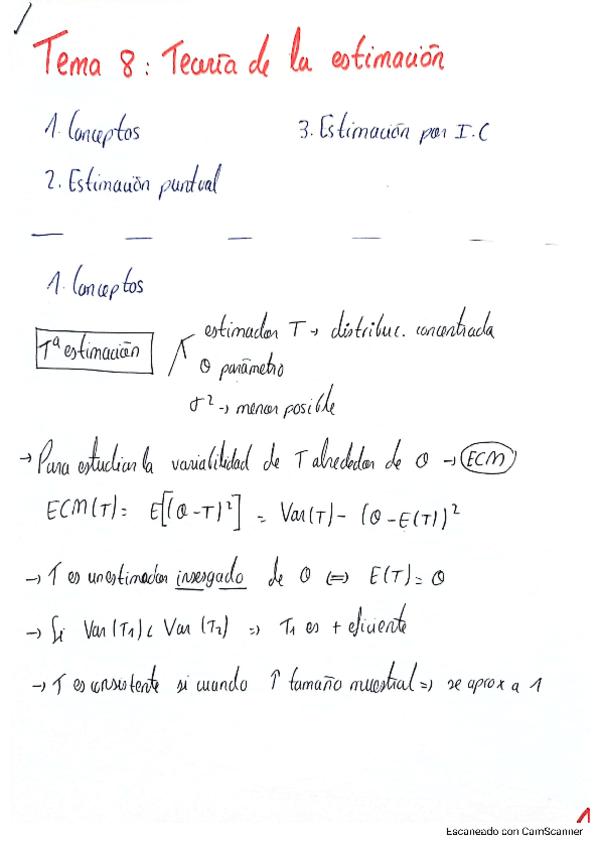 Tema 8: Teoría de la estimación
1. Conceptos
3. Estimación por I.C
2. Estimación puntual
1. Conceptos
Tª estimación
estimador T → distribuc. concentrada
θ parámetro
σ² → menor posible
→ Para estudiar la variabilidad de T alrededor de θ → ECM
ECM(T) = E[(θ-T)²] = Var(T) - (θ-E(T))²
→ T es un estimador insesgado de θ ⇔ E(T) = θ
→ Si Var(T1) < Var(T2) ⇒ T1 es + eficiente
→ T es consistente si cuando ↑ tamaño muestral ⇒ se aprox a 1
1
Escaneado con CamScanner